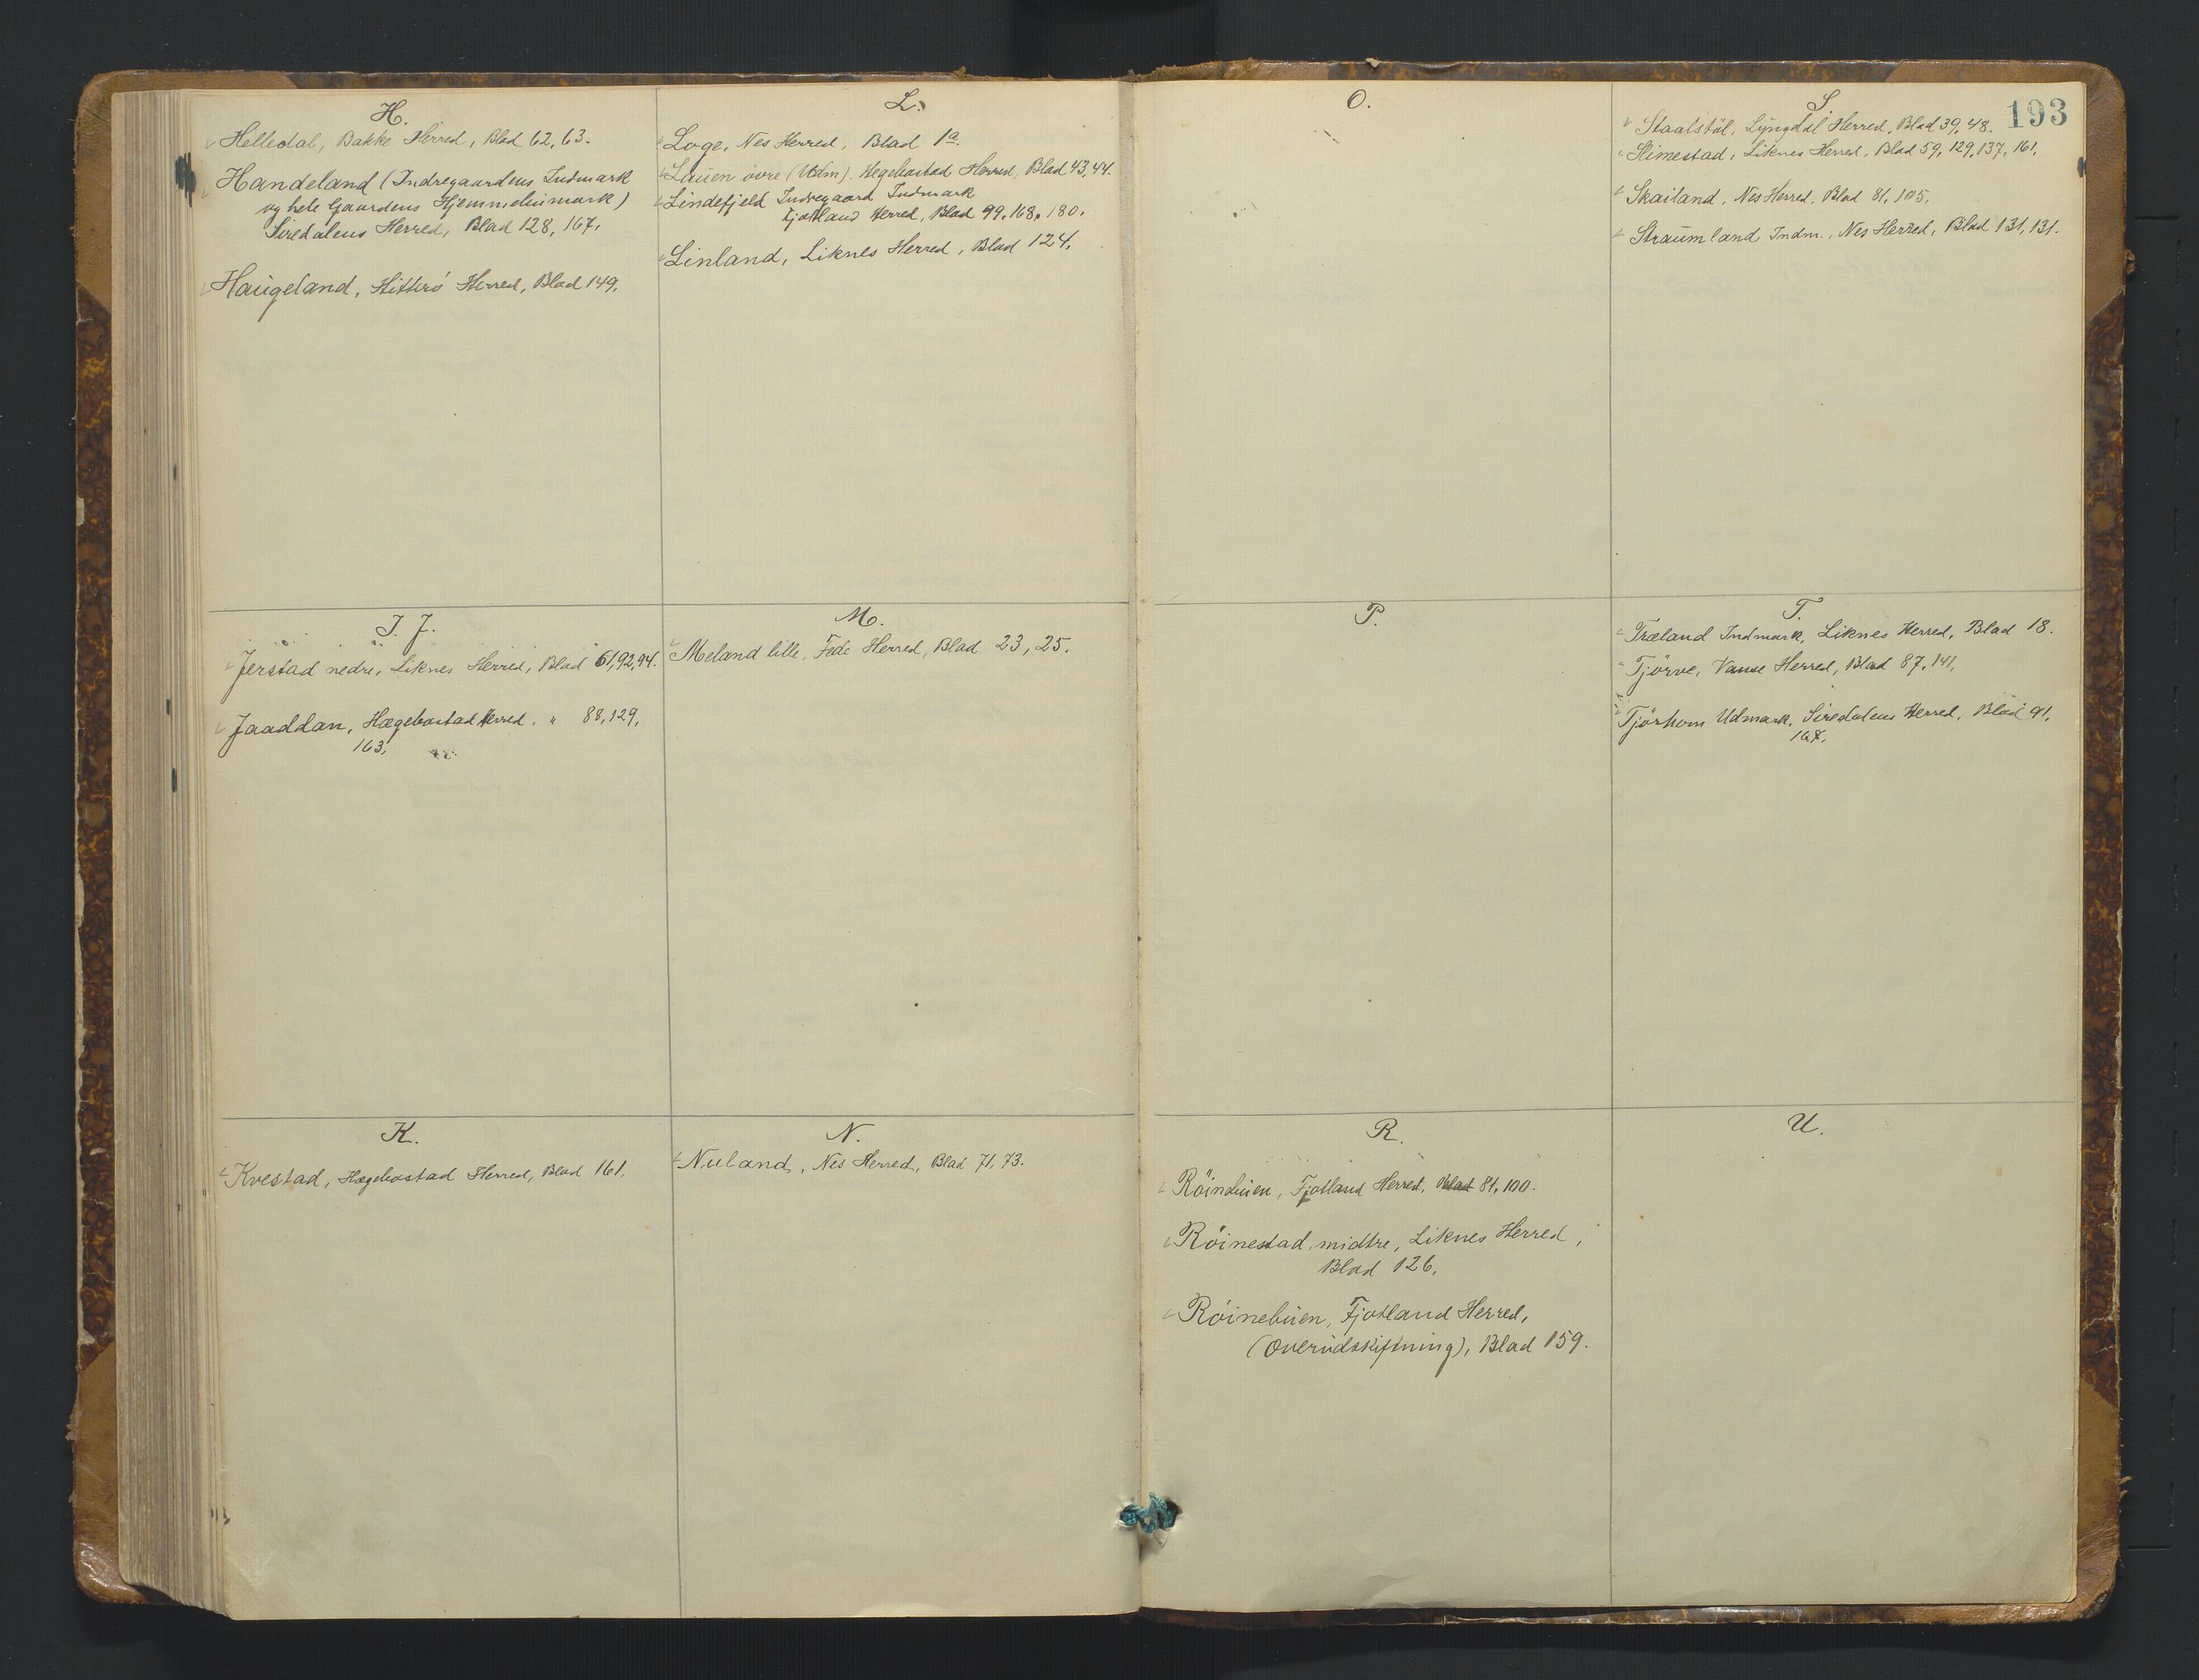 H.
Helledal, Bakke Herred, Blad 62, 63.
Handeland (Indregaardens Indmark
og hele Gaardens Hjemmeheimark)
Siredalens Herred, Blad 128, 167.
Haugeland, Hitterö Herred, Blad 149.
I. J.
Jerstad nedre, Liknes Herred, Blad 61, 92, 94.
Jaaddan, Hægebostad Herred, " 88, 129,
163.
K.
Kvestad, Hægebostad Herred, Blad 161.
L.
Loge, Nes Herred, Blad 1a.
Lauen övre (Udm). Hegebostad Herred, Blad 43, 44.
Lindefjeld Indregaard Indmark
Fjotland Herred, Blad 99, 168, 180.
Linland, Liknes Herred, Blad 124.
M.
Meland lille, Fede Herred, Blad 23, 25.
N.
Nuland, Nes Herred, Blad 71, 73.
O.
P.
R.
Röinebuen, Fjotland Herred, Blad 81, 100.
Röinestad, midtre, Liknes Herred,
Blad 126.
Röinebuen, Fjotland Herred,
(Overudskiftning), Blad 159.
193
S
Staalstöl, Lyngdal Herred, Blad 39, 48.
Slimestad, Liknes Herred, Blad 59, 129, 137, 161.
Skailand, Nes Herred, Blad 81, 105.
Straumland Indm., Nes Herred, Blad 131, 131.
T.
Træland Indmark, Liknes Herred, Blad 18.
Tjörve, Vanse Herred, Blad 87, 141.
Tjörhom Udmark, Siredalens Herred, Blad 91,
167.
U.